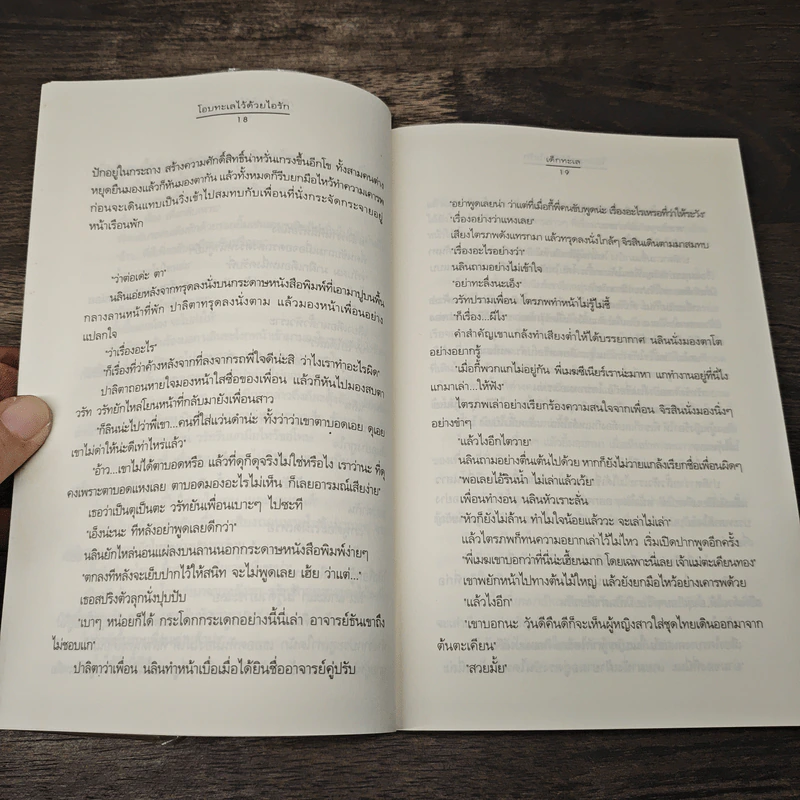 โอบทะเลไว้ด้วยไอรัก
18
ปักอยู่ในกระถาง สร้างความศักดิ์สิทธิ์น่าหวั่นเกรงขึ้นอีกโข ทั้งสามคนต่าง
หยุดยืนมองแล้วก็หันมองตากัน แล้วทั้งหมดก็รีบยกมือไหว้ทำความเคารพ
ก่อนจะเดินแทบเป็นวิ่งเข้าไปสมทบกับเพื่อนที่นั่งกระจัดกระจายอยู่
หน้าเรือนพัก
'ว่าต่อเด่ะ ตา'
นลินเอ่ยหลังจากทรุดลงนั่งบนกระดาษหนังสือพิมพ์ที่เอามาปูบนพื้น
กลางลานหน้าที่พัก ปาลิตาทรุดลงนั่งตาม แล้วมองหน้าเพื่อนอย่าง
แปลกใจ
'ว่าเรื่องอะไร'
'ก็เรื่องที่ว่าค้างหลังจากที่ลงจากรถพี่ใจดีน่ะสิ ว่าไงเราทำอะไรผิด'
ปาลิตาถอนหายใจมองหน้าใสซื่อของเพื่อน แล้วก็หันไปมองสบตา
วรัท วรัทยักไหล่โยนหน้าที่กลับมายังเพื่อนสาว
'ก็ลินน่ะไปว่าพี่เขา...คนที่ใส่แว่นดำน่ะ ทั้งว่าว่าเขาตาบอดเอย ดุเอย
เขาไม่ด่าให้น่ะดีเท่าไหร่แล้ว'
'อ้าว...เขาไม่ได้ตาบอดหรือ แล้วที่ดุก็ดุจริงไม่ใช่หรือไง เราว่านะ ที่ดุ
คงเพราะตาบอดแหงเลย ตาบอดมองอะไรไม่เห็น ก็เลยอารมณ์เสียง่าย'
เธอว่าเป็นตุเป็นตะ วรัทยันเพื่อนเบาะๆ ไปซะที
'เอ็งน่ะนะ ทีหลังอย่าพูดเลยดีกว่า'
นลินยักไหล่นอนแผ่ลงบนลานนอกกระดาษหนังสือพิมพ์ง่ายๆ
'ตกลงทีหลังจะเย็บปากไว้ให้สนิท จะไม่พูดเลย เฮ้ย ว่าแต่...'
เธอสปริงตัวลุกนั่งปุบปับ
'เบาๆ หน่อยก็ได้ กระโดกกระเดกอย่างนี้นี่เล่า อาจารย์ธันเขาถึง
ไม่ชอบแก'
ปาลิตาว่าเพื่อน นลินทำหน้าเบื่อเมื่อได้ยินชื่ออาจารย์คู่ปรับ
เด็กทะเล
19
'อย่าพูดเลยน่า ว่าแต่ที่เมื่อกี้พี่คนขับพูดน่ะ เรื่องอะไรเหรอที่ว่าให้ระวัง'
'เรื่องอย่างว่าแหงเลย'
เสียงไตรภพดังแทรกมา แล้วทรุดลงนั่งใกล้ๆ จิรสินเดินตามมาสมทบ
'เรื่องอะไรอย่างว่า'
นลินถามอย่างไม่เข้าใจ
'อย่าทะลึ่งนะเอ็ง'
วรัทปรามเพื่อน ไตรภพทำหน้าไม่รู้ไม่ชี้
'ก็เรื่อง...ผีไง'
คำสำคัญเขาแกล้งทำเสียงต่ำให้ได้บรรยากาศ นลินนั่งมองตาโต
อย่างอยากรู้
'เมื่อกี้พวกแกไม่อยู่กัน พี่เมฆซีเนียร์เราน่ะมาหา แกทำงานอยู่ที่นี่ไง
แกมาเล่า...ให้ฟัง'
ไตรภพเล่าอย่างเรียกร้องความสนใจจากเพื่อน จิรสินนั่งมองนิ่งๆ
อย่างขำๆ
'แล้วไงอีกไตวาย'
นลินถามอย่างตื่นเต้นไปด้วย หากก็ยังไม่วายแกล้งเรียกชื่อเพื่อนผิดๆ
'พอเลยไอ้รินน้ำ ไม่เล่าแล้วเว้ย'
เพื่อนทำงอน นลินหัวเราะลั่น
'หัวก็ยังไม่ล้าน ทำไมใจน้อยแล้ววะ จะเล่าไม่เล่า'
แล้วไตรภพก็ทนความอยากเล่าไว้ไม่ไหว เริ่มเปิดปากพูดอีกครั้ง
'พี่เมฆเขาบอกว่าที่นี่น่ะเฮี้ยนมาก โดยเฉพาะนี่เลย เจ้าแม่ตะเคียนทอง'
เขาพยักหน้าไปทางต้นไม้ใหญ่ แล้วยังยกมือไหว้อย่างเคารพด้วย
'แล้วไงอีก'
'เขาบอกนะ วันดีคืนดีก็จะเห็นผู้หญิงสาวใส่ชุดไทยเดินออกมาจาก
ต้นตะเคียน'
'สวยมั้ย'